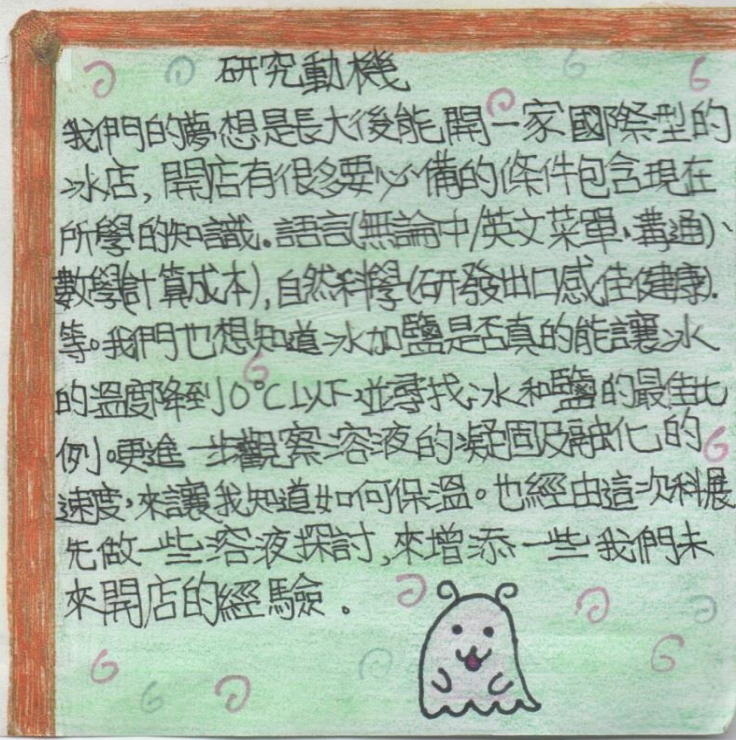 研究動機
我們的夢想是長大後能開一家國際型的
冰店,開店有很多要必備的條件包含現在
所學的知識。語言(無論中/英文菜單、溝通)、
數學(計算成本),自然科學(研發出口感佳健康).
等。我們也想知道冰加鹽是否真的能讓冰
的溫度降到0°C以下並尋找冰和鹽的最佳比
例。更進一步觀察溶液的凝固及融化的
速度,來讓我知道如何保溫。也經由這次科展
先做一些溶液探討,來增添一些我們未
來開店的經驗。